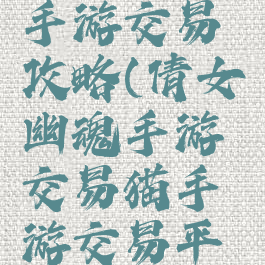 手游交易
攻略(倩女
幽魂手游
交易猫手
游交易平